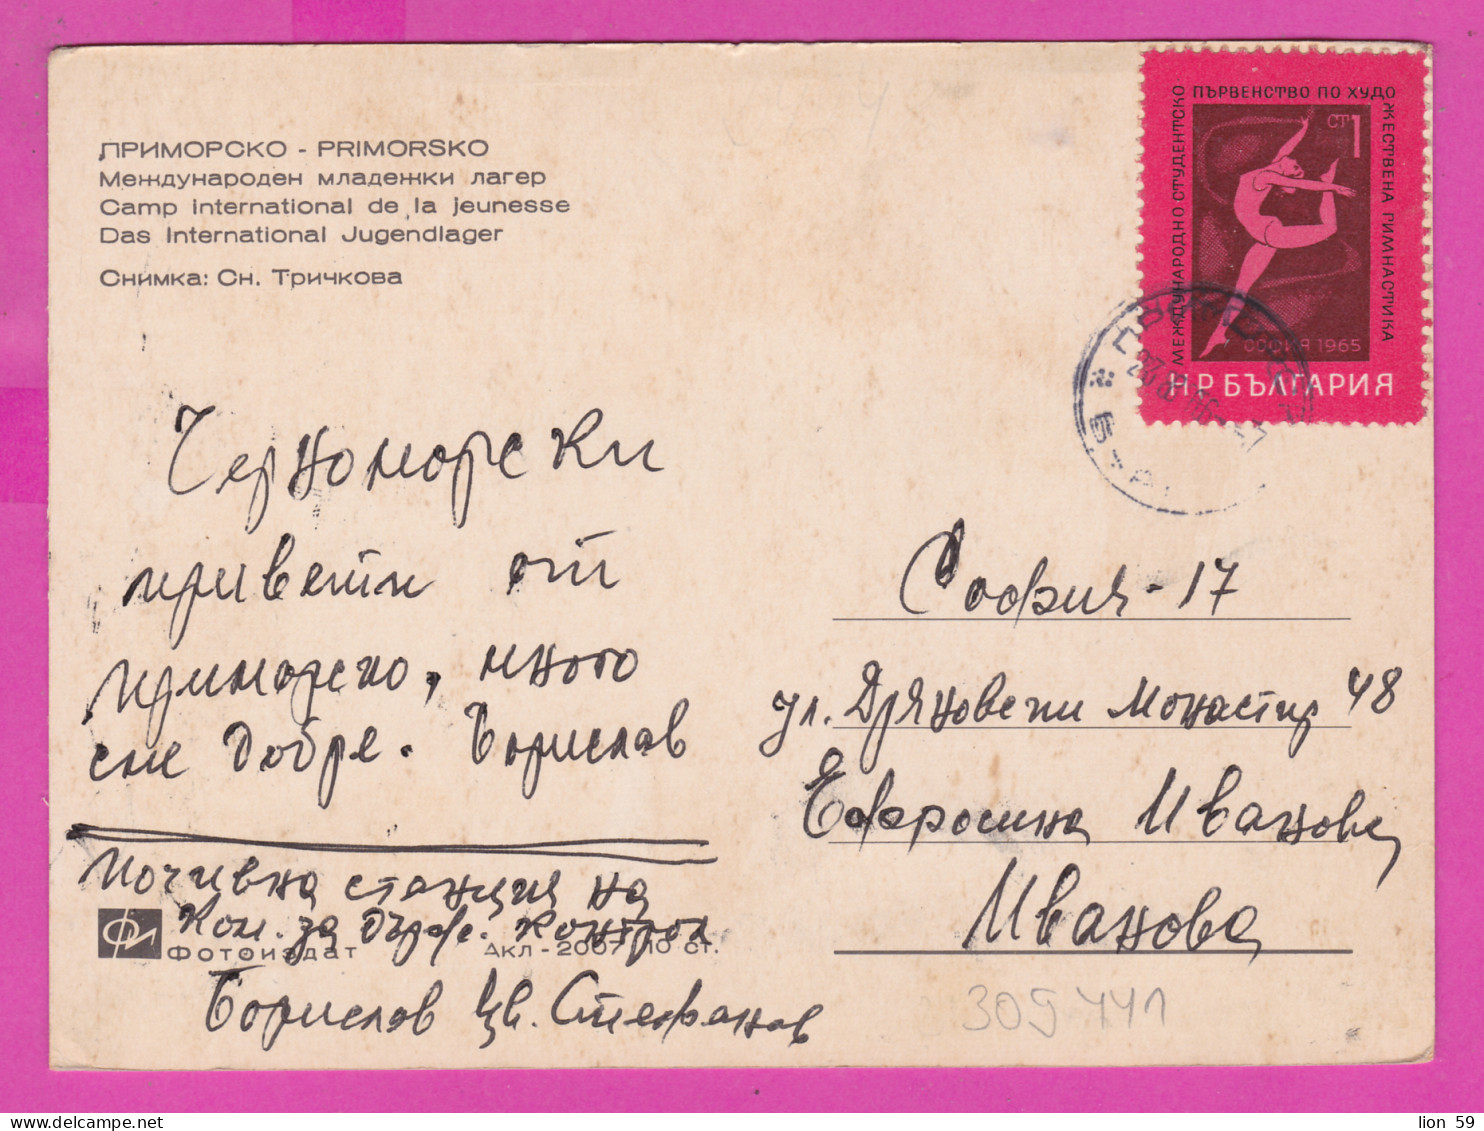 ПРИМОРСКО - PRIMORSKO
Международен младежки лагер
Camp international de la jeunesse
Das International Jugendlager
Снимка: Сн. Тричкова
МЕЖДУНАРОДНО СТУДЕНТСКО
ПЪРВЕНСТВО ПО ХУДО
ЖЕСТВЕНА ГИМНАСТИКА
СТ 1
СОФИЯ 1965
НР БЪЛГАРИЯ
Черноморски
привети от
Приморско, много
сме добре. Борислав
Почивна станция на
Ком. за държ. контрол
Борислав Цв. Стефанов
Фотоиздат
Акл - 2007 10 ст.
София - 17
ул. Дряновски Монастир 48
Ефросина Иванова
Иванова
309441
lion 59